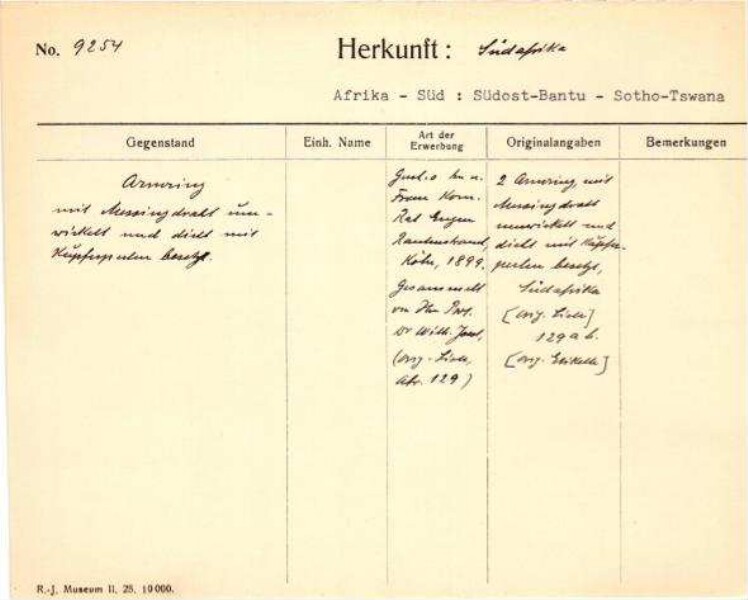 No. 9254 Herkunft: Südafrika
Afrika - Süd : Südost-Bantu - Sotho-Tswana
Gegenstand Einh. Name Art der Erwerbung Originalangaben Bemerkungen
Armring
mit Messingdraht um-
wickelt und dicht mit
Kupferperlen besetzt.
Frau Kom.
Rat Eugen
Rautenstrauch,
Köln, 1899.
Gesammelt
von Herr Prof.
Dr Wilh. Joest,
(orig. Liste,
129)
2 Armringe, mit
Messingdraht
umwickelt und
dicht mit Kupfer-
perlen besetzt,
Südafrika
[orig. Liste]
129 a b.
[orig. Etikette]
R.-J. Museum II. 25. 10000.